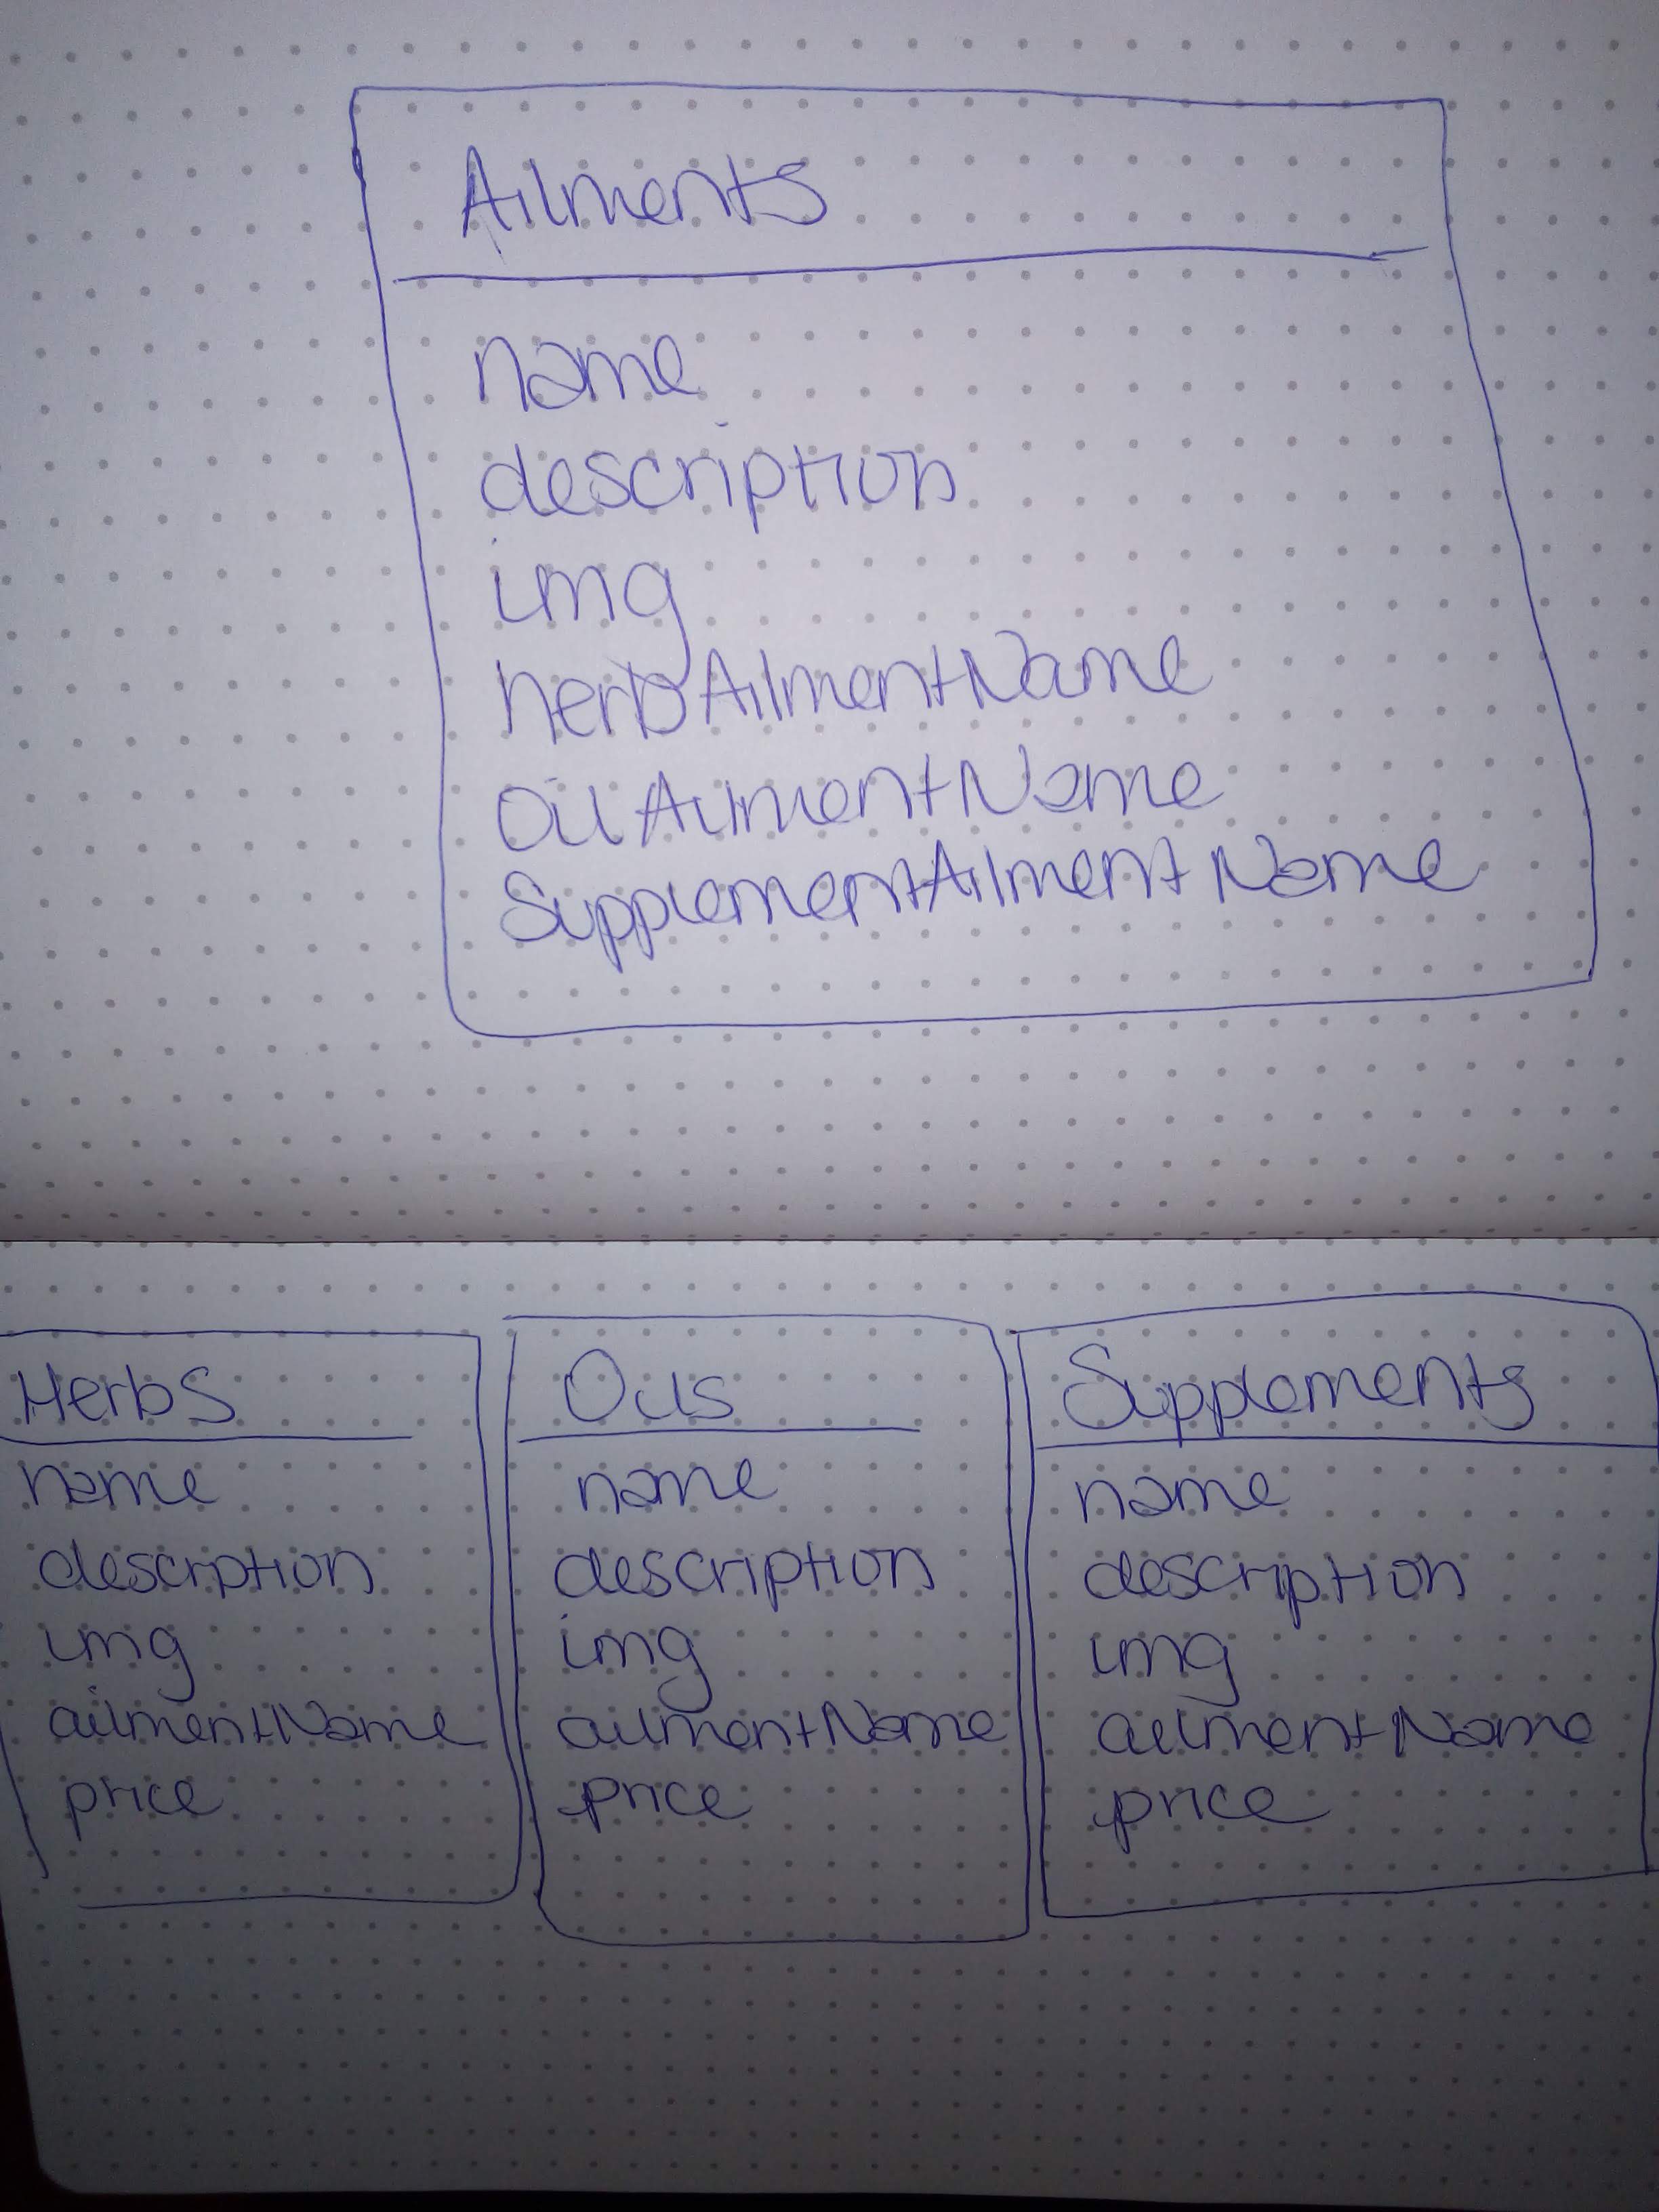 Ailments
name
description
img
herbAilmentName
OilAilmentName
SupplementAilmentName
Herbs
name
description
img
ailmentName
price
Oils
name
description
img
ailmentName
price
Supplements
name
description
img
ailmentName
price